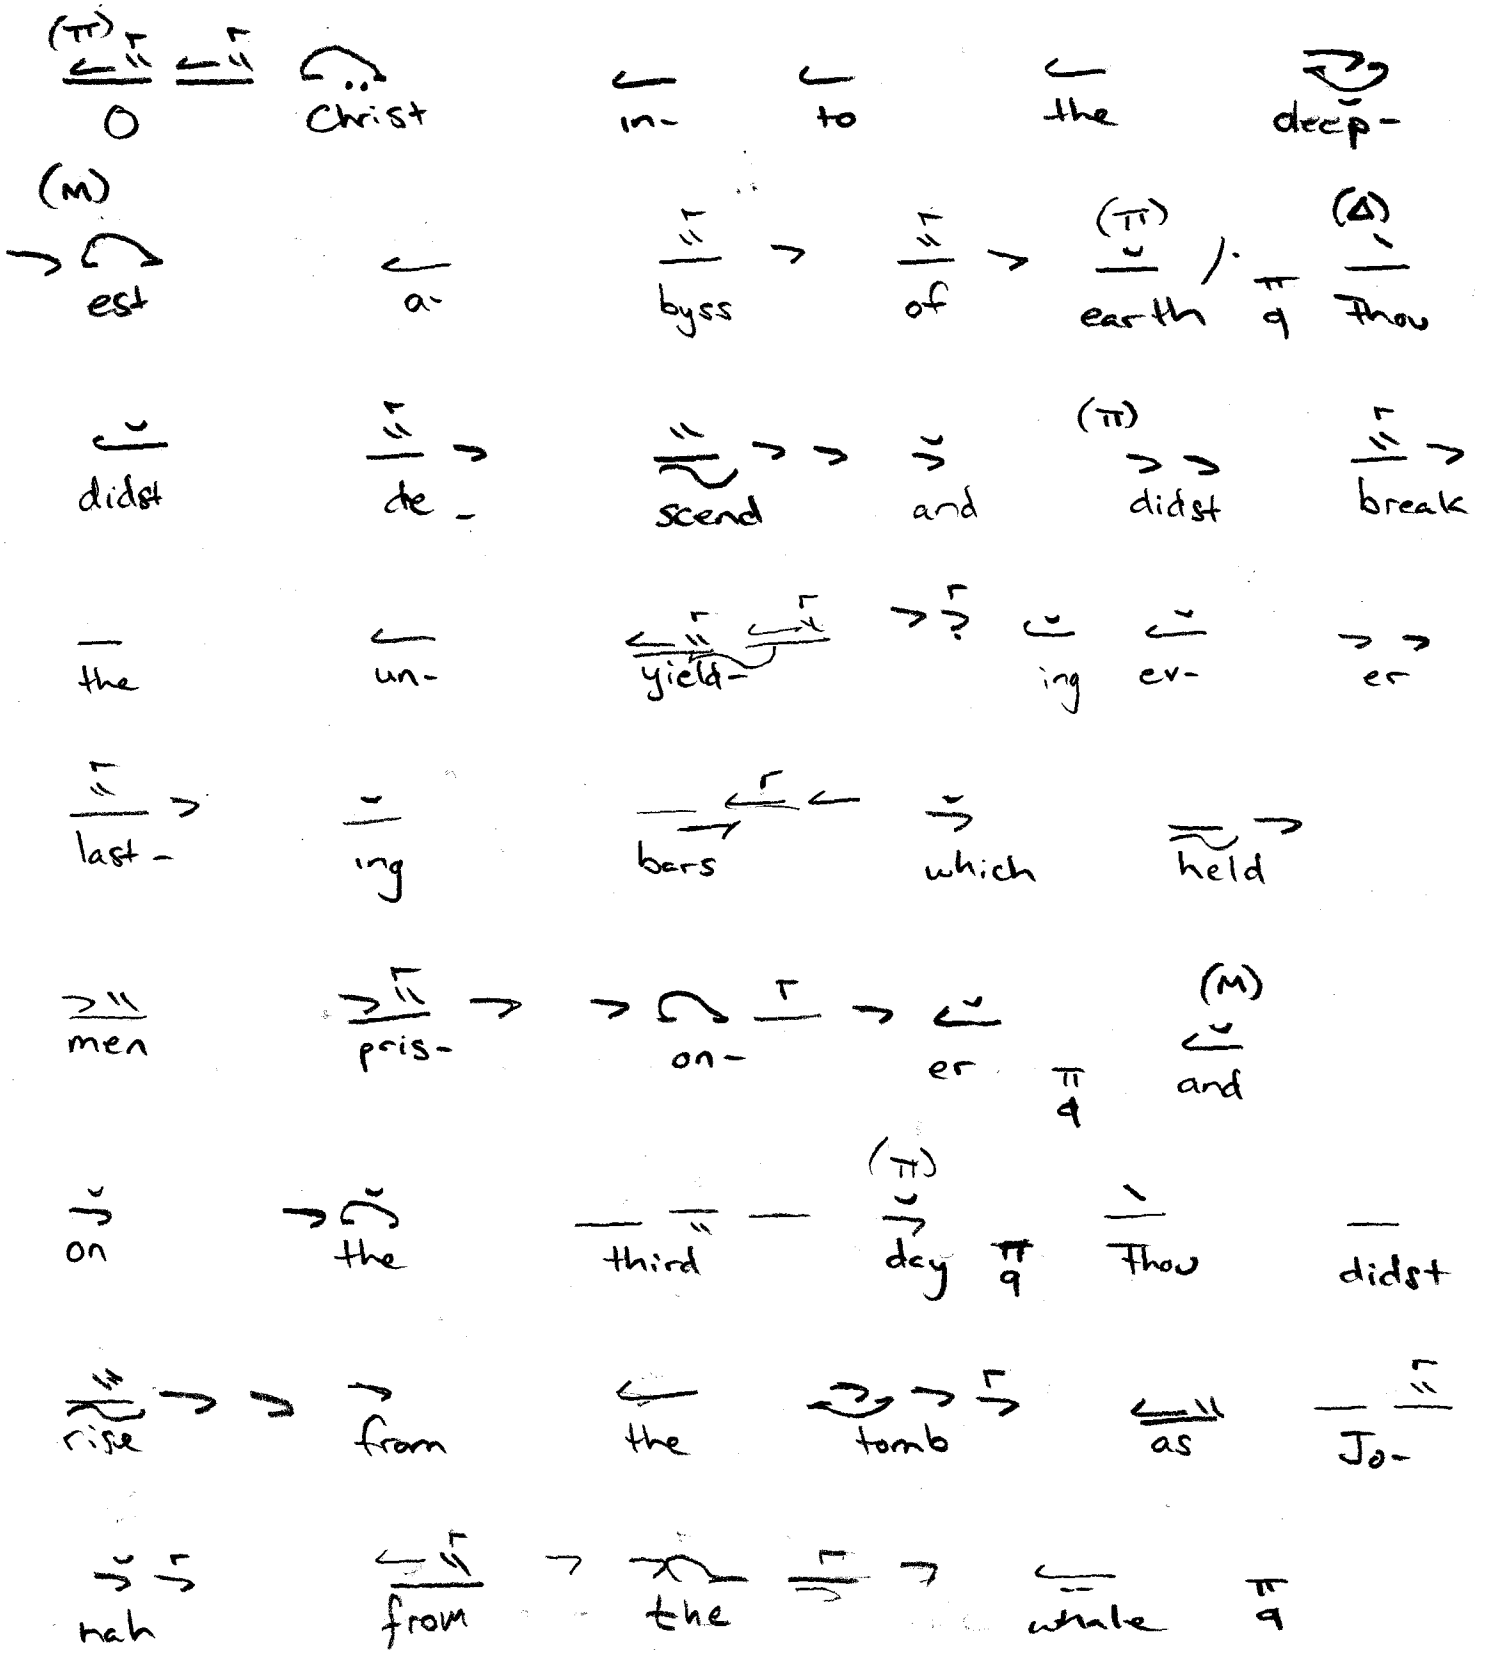 (π) O Christ in- to the deep-
(M) est a- byss of (π) earth π q (Δ) Thou
didst de- scend and (π) didst break
the un- yield- ing ev- er
last- ing bars which held
men pris- on- er π q (M) and
on the third (π) day π q Thou didst
rise from the tomb as Jo-
nah from the whale π q